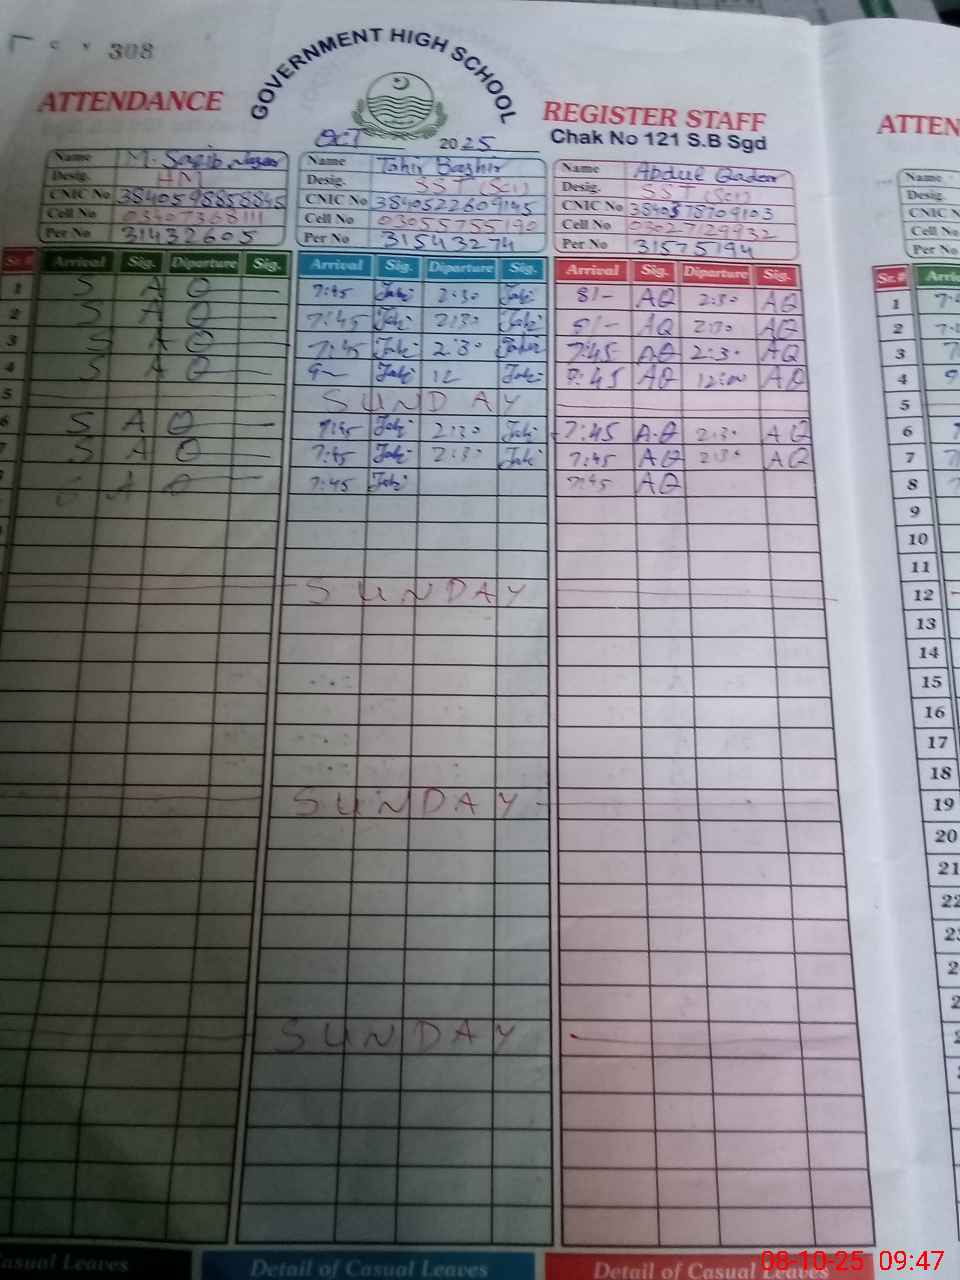 308
GOVERNMENT HIGH SCHOOL
ATTENDANCE
REGISTER STAFF
ATTEN
OCT 2025
Chak No 121 S.B Sgd
Name M. Saqib Nazeer
Desig. HM
CNIC No 3840598858845
Cell No 03407368111
Per No 31432605
Name Tahir Bashir
Desig. SST (Sci)
CNIC No 3840522609145
Cell No 03055755190
Per No 31543274
Name Abdul Qadeer
Desig. SST (Sci)
CNIC No 3840378709103
Cell No 03027129932
Per No 31575194
Name
Desig.
CNIC N
Cell No
Per No
Sr.# Arrival Sig. Diparture Sig. Arrival Sig. Diparture Sig. Arrival Sig. Diparture Sig. Sr.# Arriv
1 S A Q 7:45 2:30 8/- AQ 2:30 AQ 1
2 S A Q 7:45 2:30 AQ 2:30 AQ 2
3 S A Q 7:45 2:30 7:45 AQ 2:30 AQ 3
4 S A Q 12 AQ 12:00 AQ 4
5 SUNDAY 5
6 S A Q 7:45 2:30 7:45 A.Q 2:30 AQ 6
7 S A Q 7:45 2:30 7:45 AQ 2:30 AQ 7
A Q 7:45 7:45 AQ 8
9
10
11
SUNDAY 12
13
14
15
16
17
18
SUNDAY 19
20
21
22
SUNDAY
Casual Leaves
Detail of Casual Leaves
Detail of Casual Leaves
08-10-25 09:47